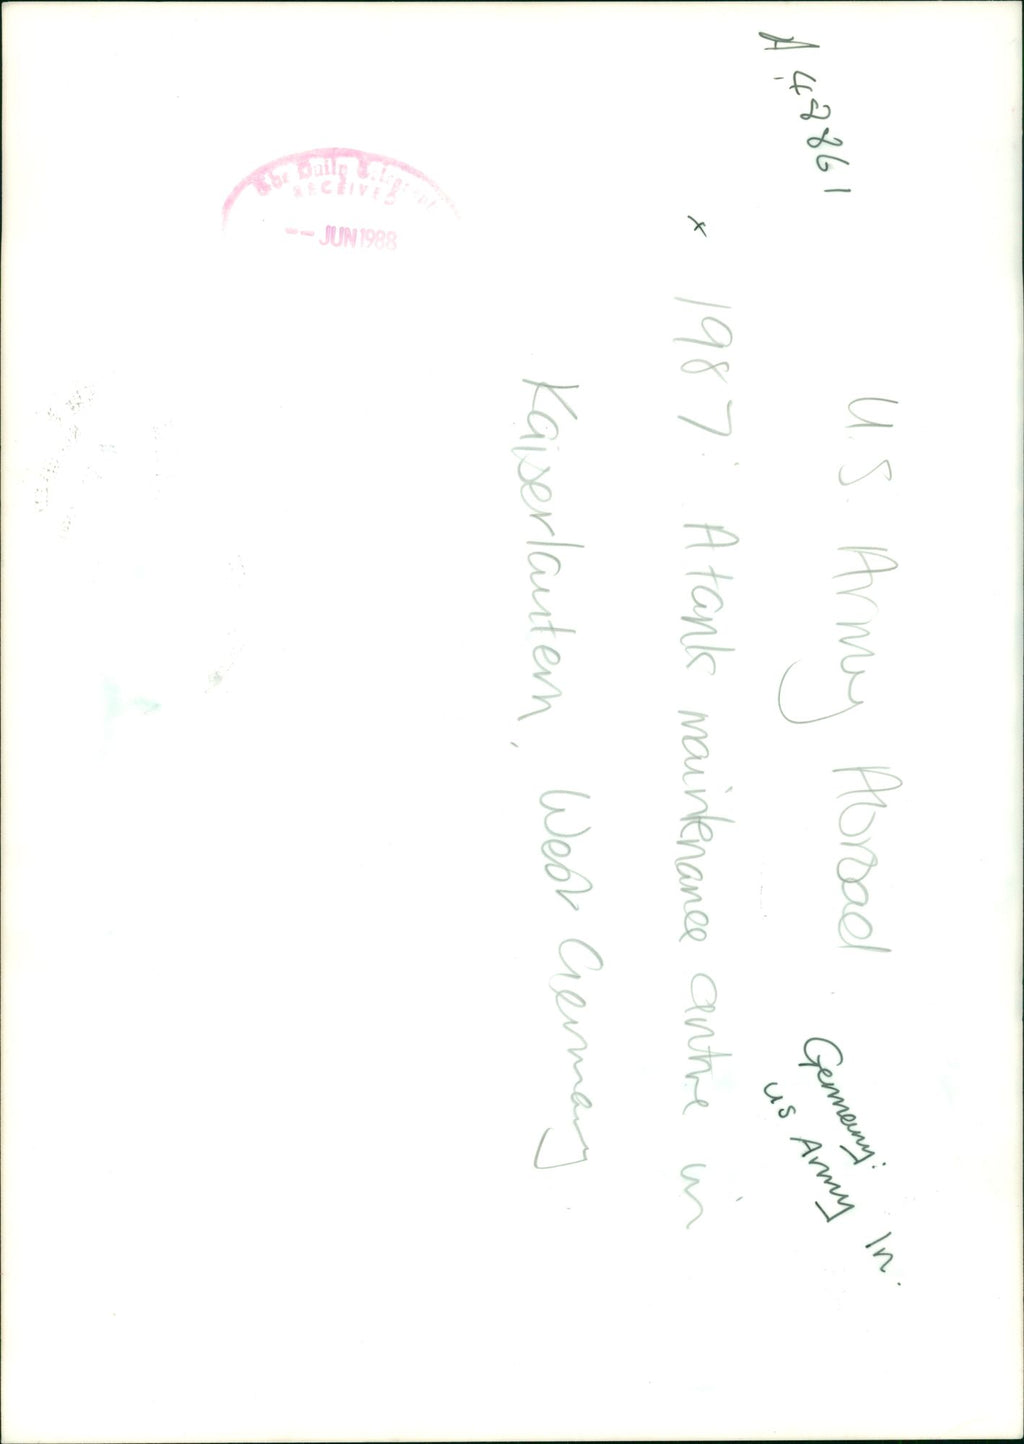 A 42861
U.S. Army Abroad.
Germany: In.
US Army
x 1987: A tank maintenance centre in
Kaiserlautern, West Germany
The Daily Telegraph
RECEIVED
-- JUN 1988